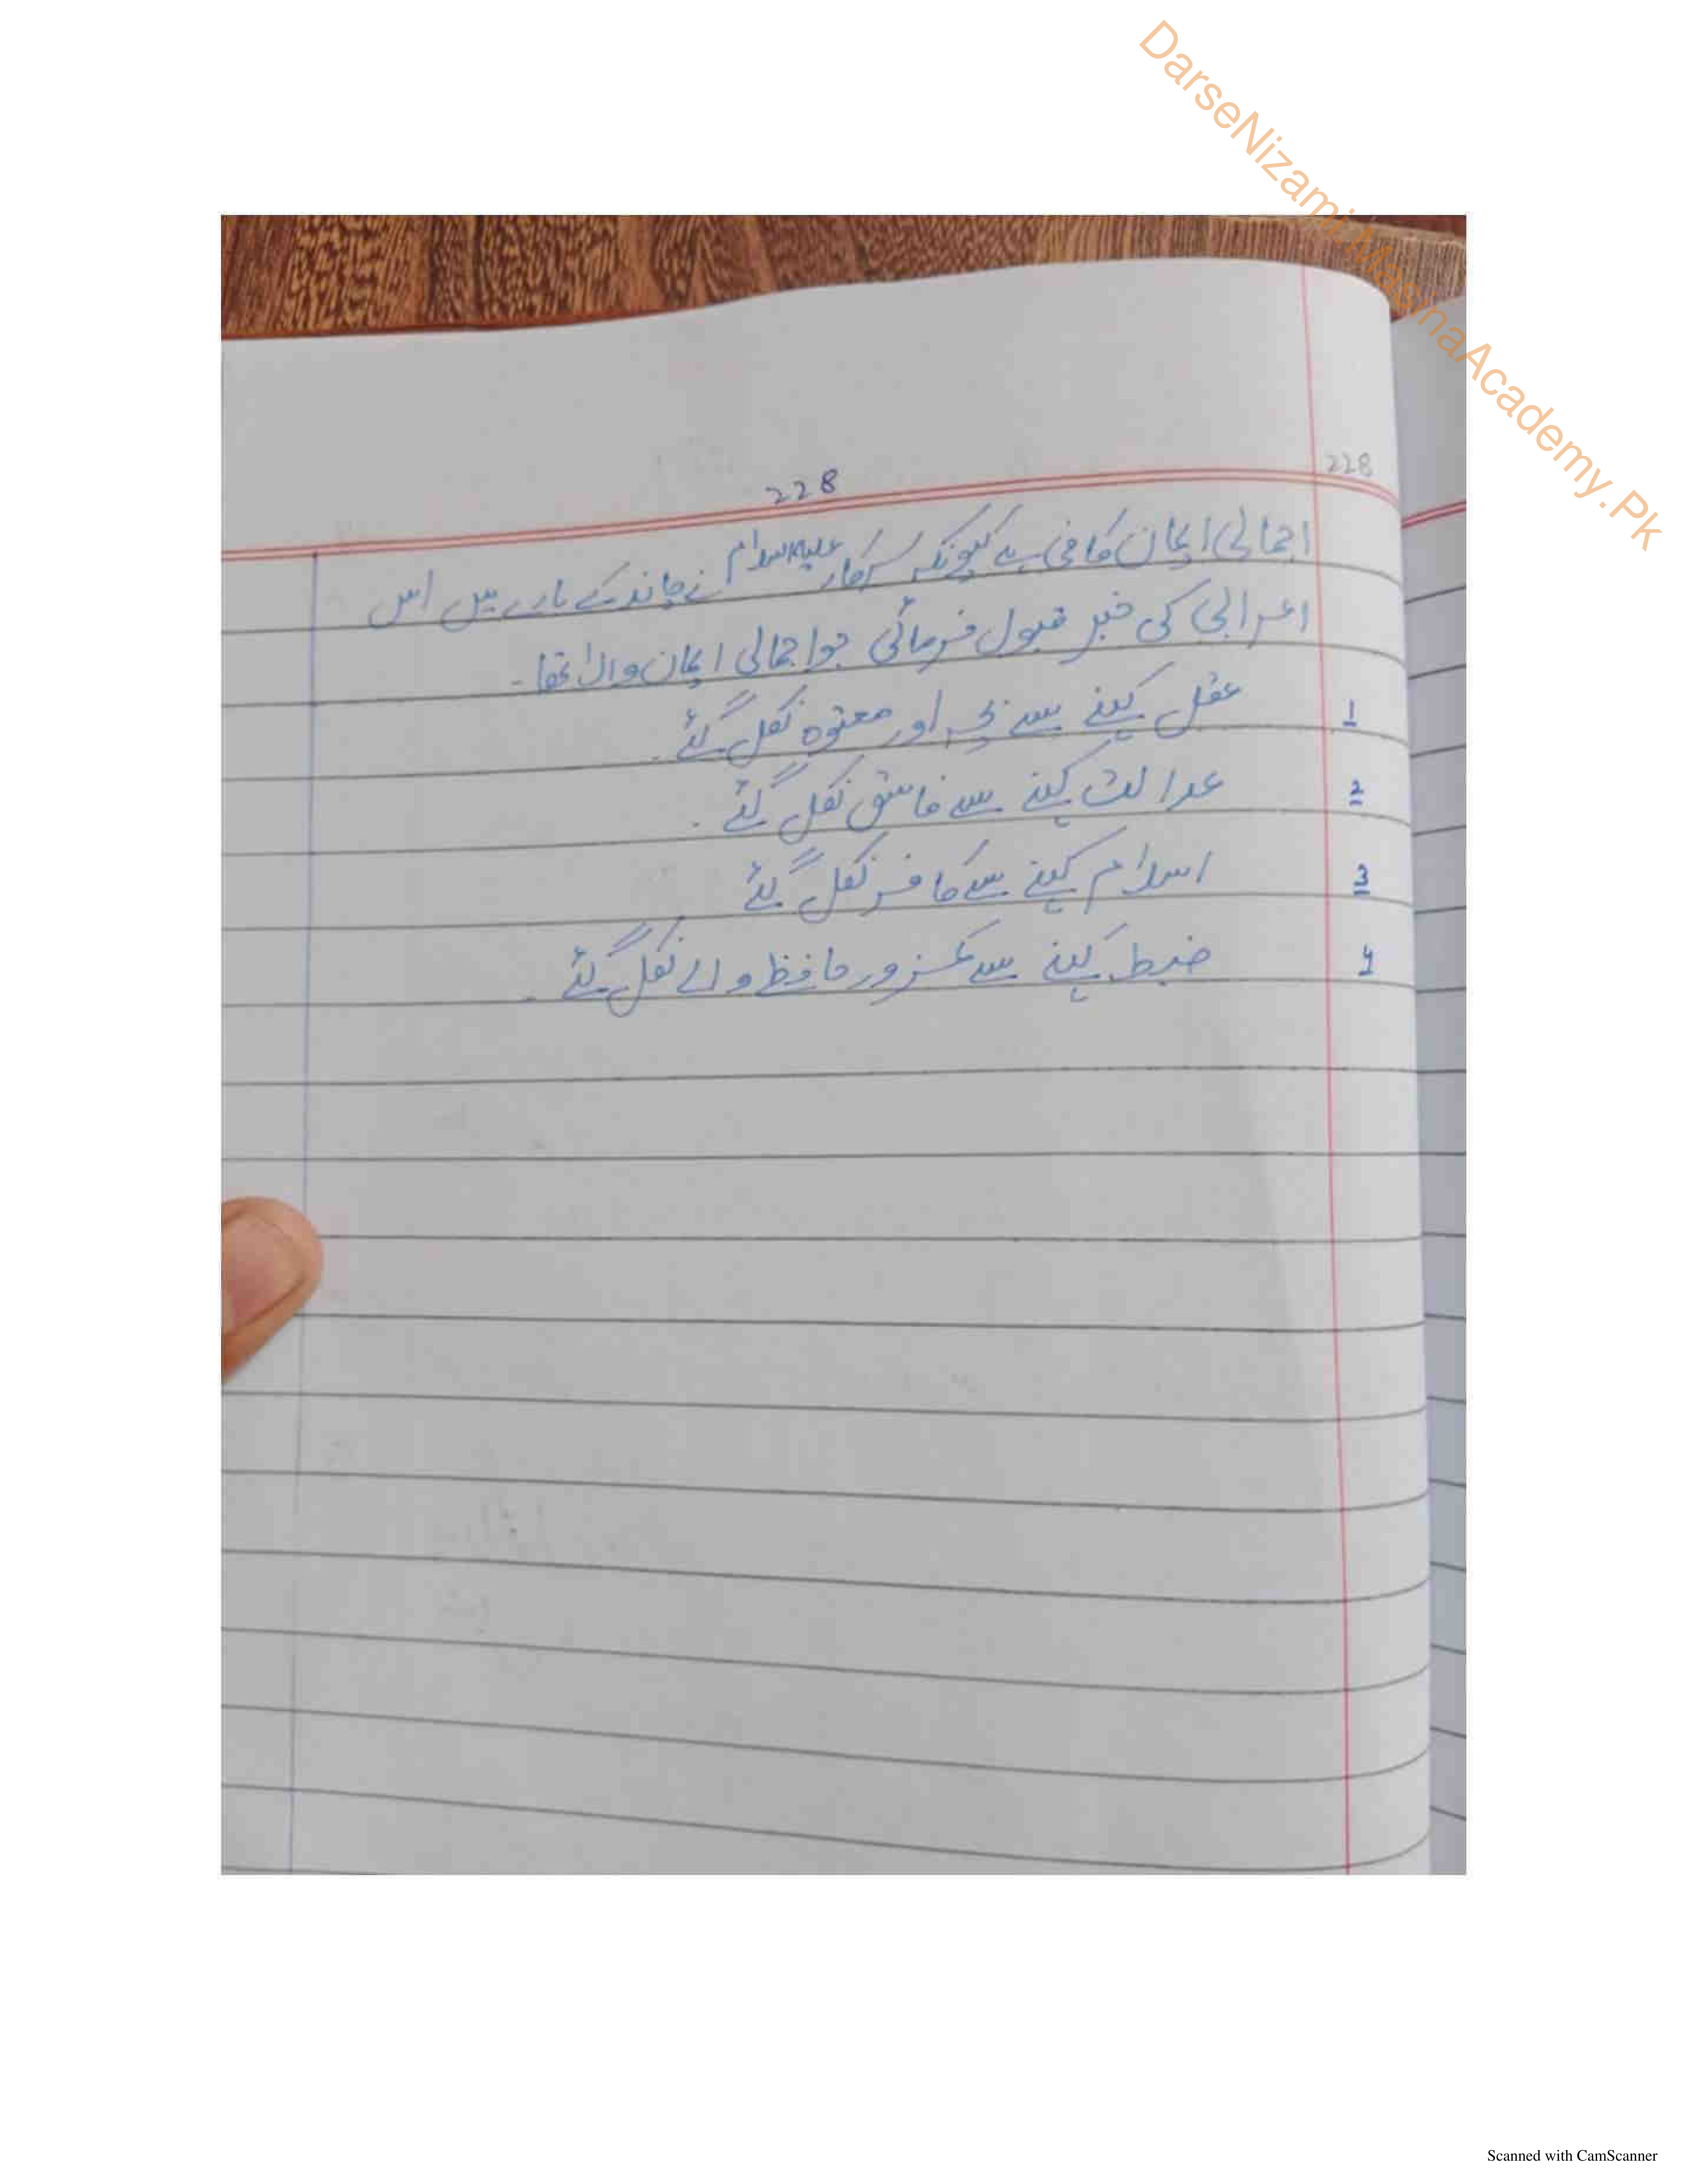 DarseNizami.MadinaAcademy.Pk
228
228
اجمالی ایمان کافی ہے کیونکہ سرکار علیہ السلام نے چاند کے بارے میں اس
اعرابی کی خبر قبول فرمائی جو اجمالی ایمان والا تھا۔
1 عقل کہنے سے بچہ اور معتوہ نکل گئے۔
2 عدالت کہنے سے فاسق نکل گئے۔
3 اسلام کہنے سے کافر نکل گئے
4 ضبط کہنے سے کمزور حافظے والے نکل گئے۔
Scanned with CamScanner